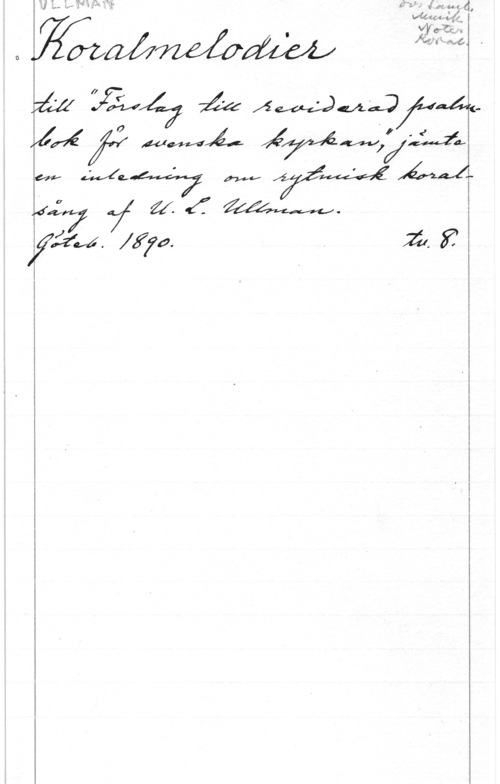 ULLMAN
Sv. Saml.
Musik
Noter
Koral.
Koralmelodier
till "Förslag till reviderad psalm-
bok för svenska kyrkan," jämte
en inledning om rytmisk koral-
sång af U. L. Ullman.
Göteb. 1890. tv. 8.